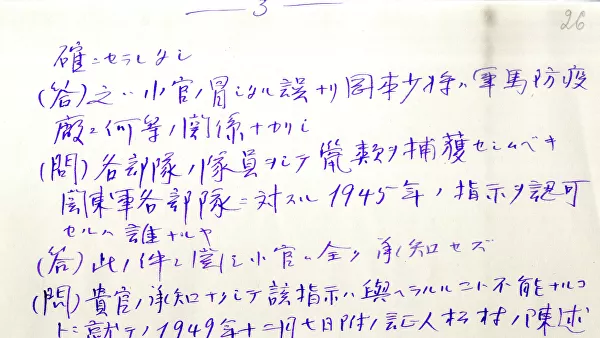 3
26
確ニセラレタシ
(答) 之ハ小官ノ冒シタル誤ナリ岡本少将ハ軍馬防疫
廠ニ何等ノ関係ナカリシ
(問) 各部隊ノ隊員ヲシテ鼠類ヲ捕獲セシムベキ
関東軍各部隊ニ対スル1945年ノ指示ヲ認可
セルハ誰ナルヤ
(答) 此ノ件ニ関シ小官ハ全ク承知セズ
(問) 貴官ノ承知ナクシテ該指示ハ與ヘラルルコト不能ナルコ
トニ就テノ1949年十二月七日附ノ証人松村ノ陳述